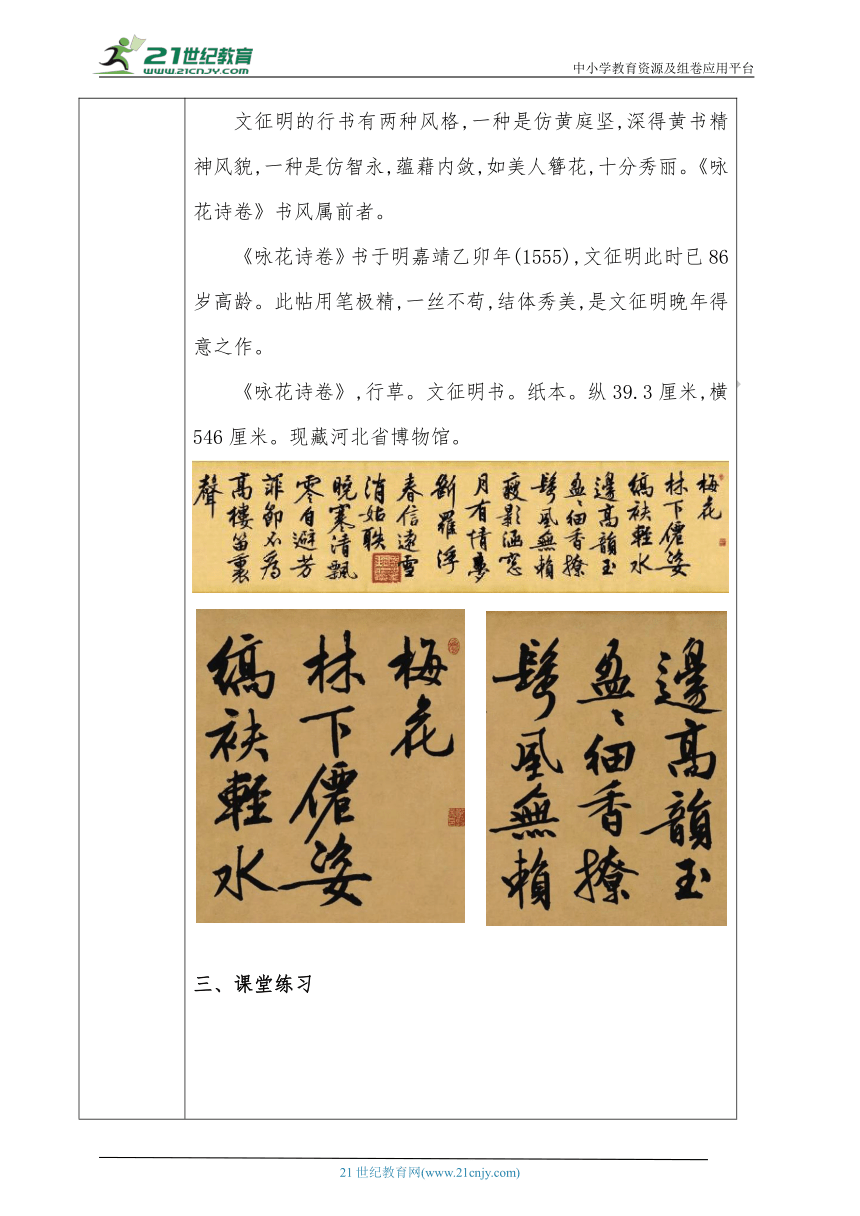 21世纪教育
WWW.21CNJY.COM
中小学教育资源及组卷应用平台
文征明的行书有两种风格,一种是仿黄庭坚,深得黄书精
神风貌,一种是仿智永,蕴藉内敛,如美人簪花,十分秀丽。《咏
花诗卷》书风属前者。
《咏花诗卷》书于明嘉靖乙卯年(1555),文征明此时已86
岁高龄。此帖用笔极精,一丝不苟,结体秀美,是文征明晚年得
意之作。
《咏花诗卷》,行草。文征明书。纸本。纵39.3厘米,横
546厘米。现藏河北省博物馆。
梅花
林下僊姿
缟袂輕水
邊高韻玉
盈〻细香撩
鬂風無賴
疎影涵窓
月有情夢
斷羅浮
春信遠雪
消姑
晚寒清飄
零自避芳
菲節不為
高樓笛裏
聲
梅花
林下僊姿
缟袂輕水
邊高韻玉
盈〻细香撩
鬂風無賴
三、课堂练习
21世纪教育网(www.21cnjy.com)